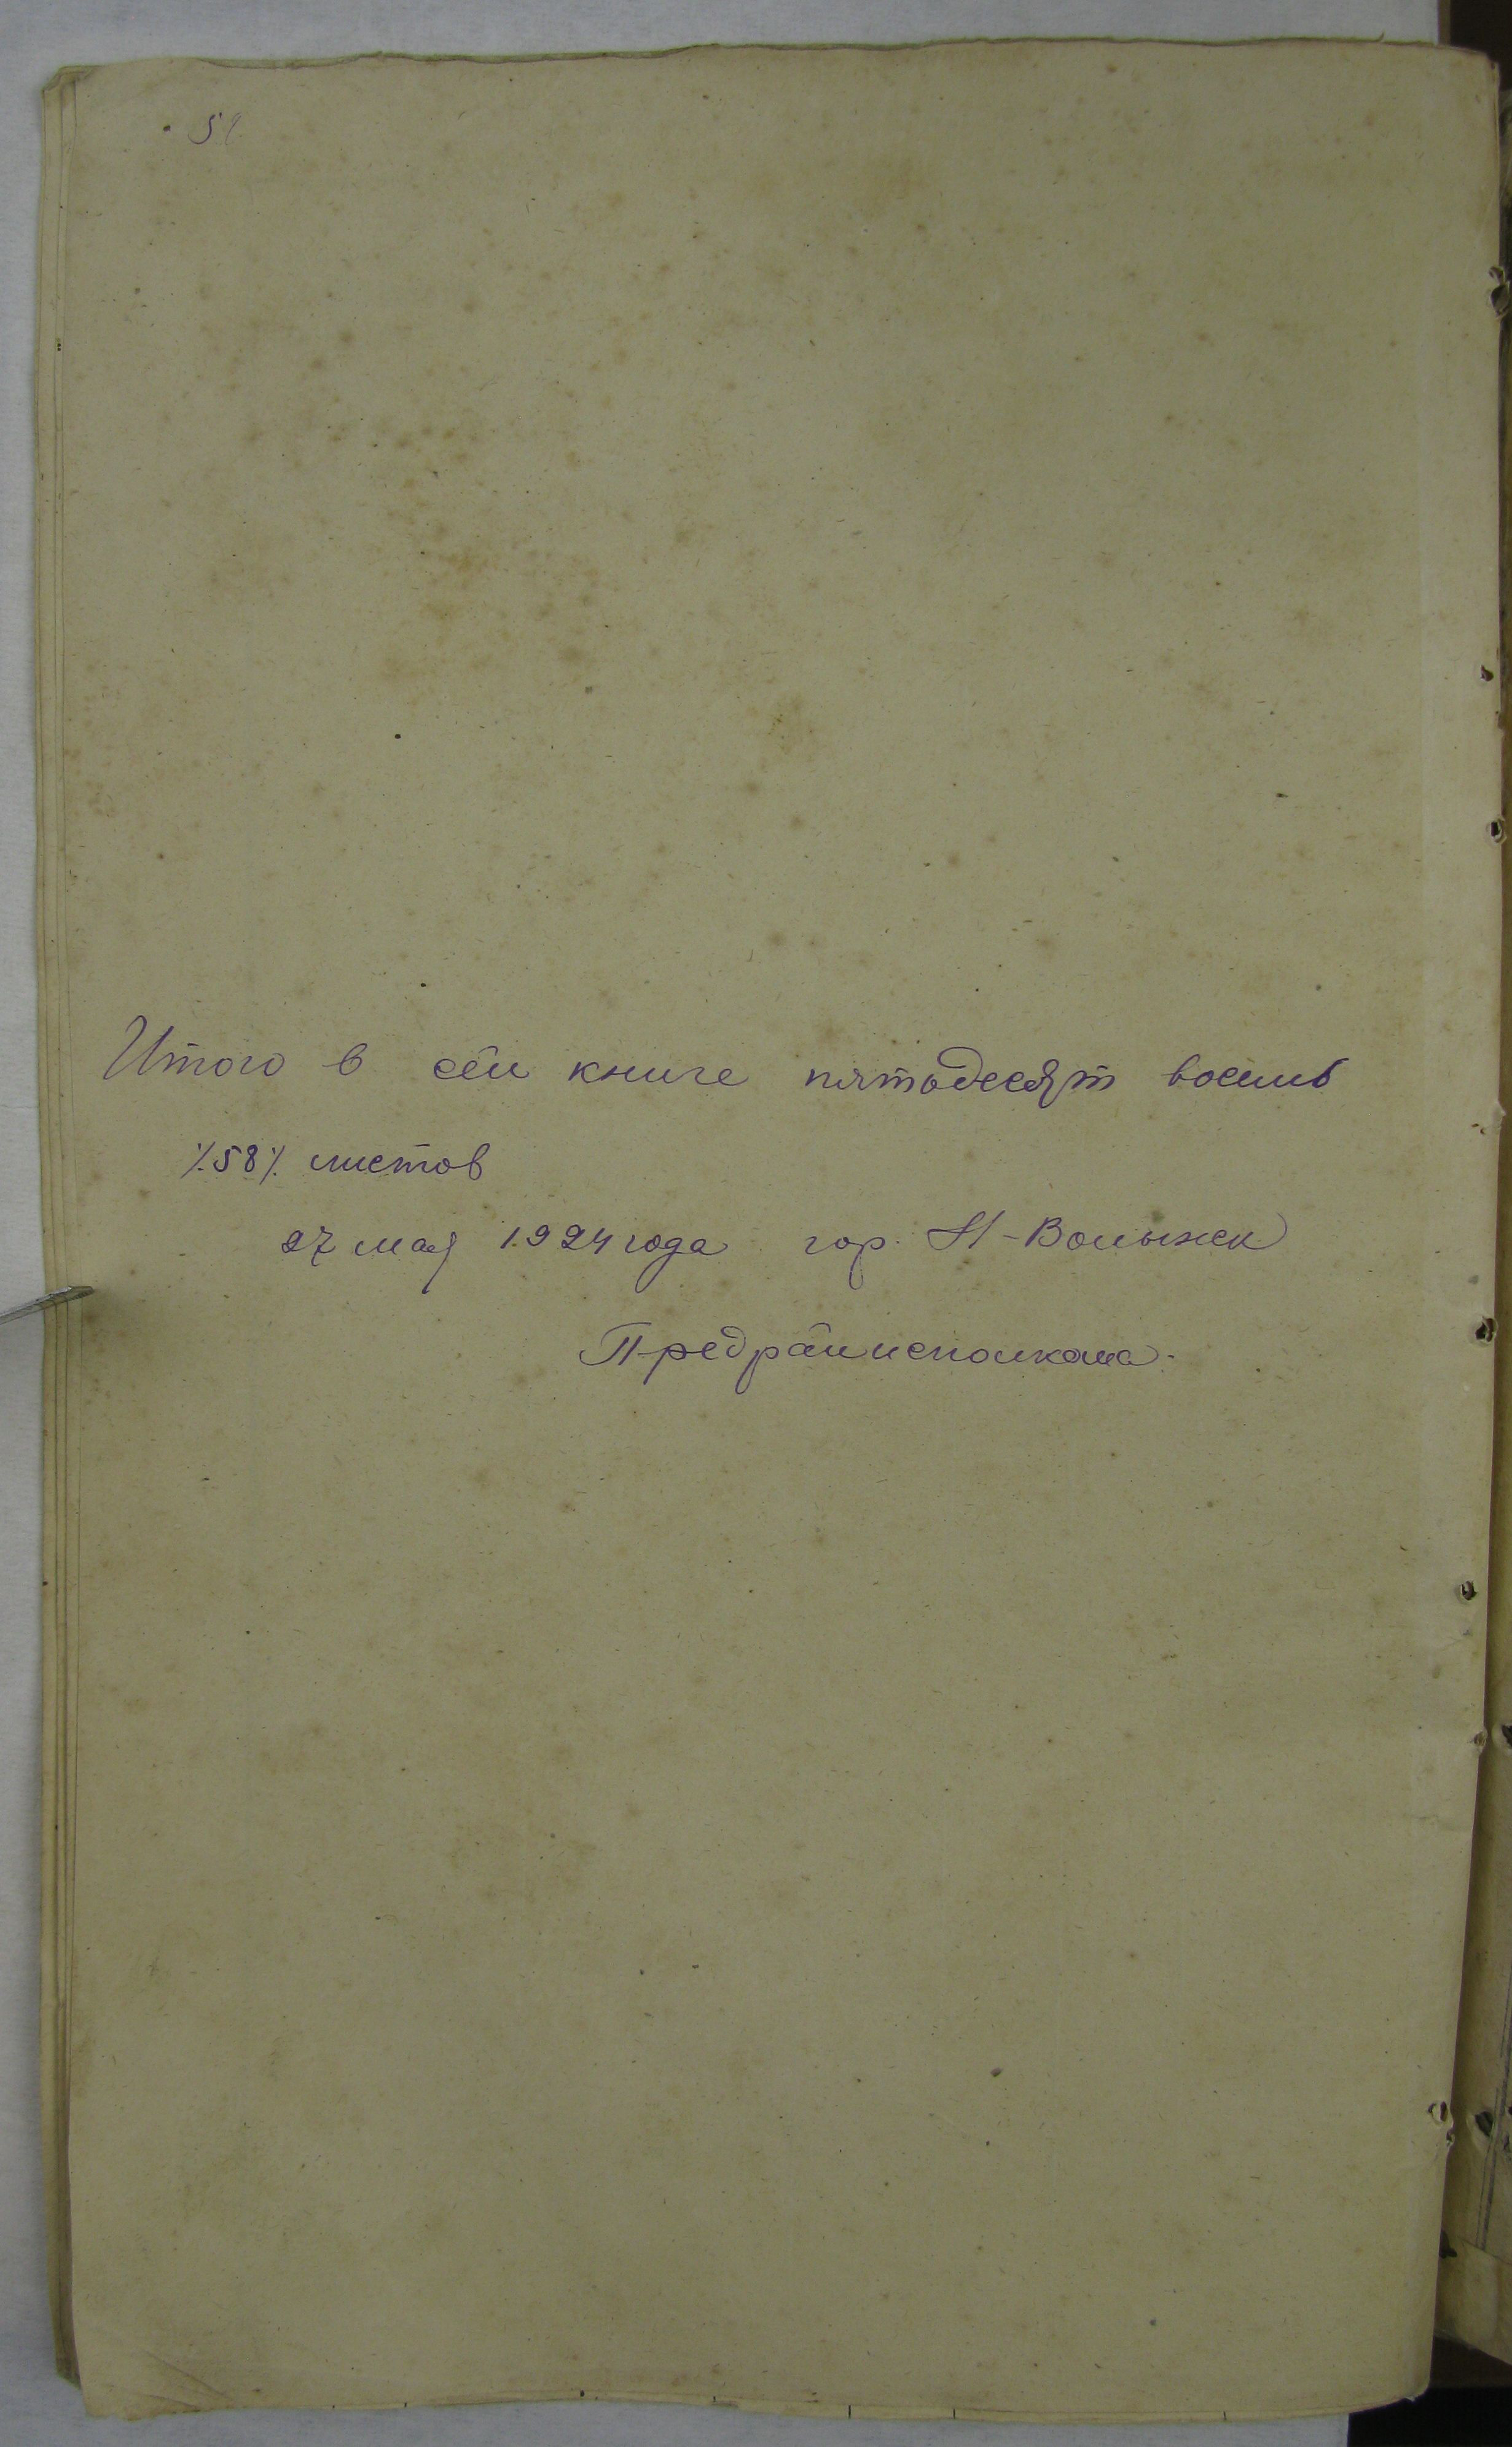 Итого в сей книге пятьдесят восемь
./.58./. листов
27 мая 1924 года гор. Н-Волынск
Предрайисполкома